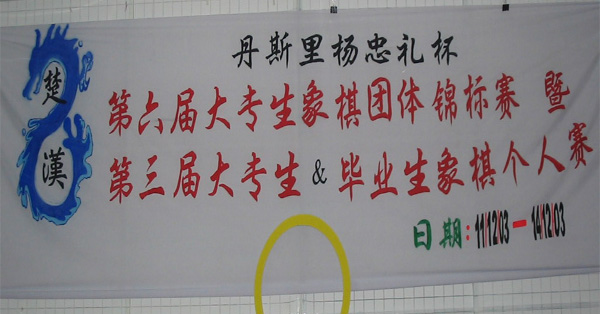 楚
漢
丹斯里杨忠礼杯
第六届大专生象棋团体锦标赛 暨
第三届大专生 & 毕业生象棋个人赛
日期: 11/12/03 — 14/12/03